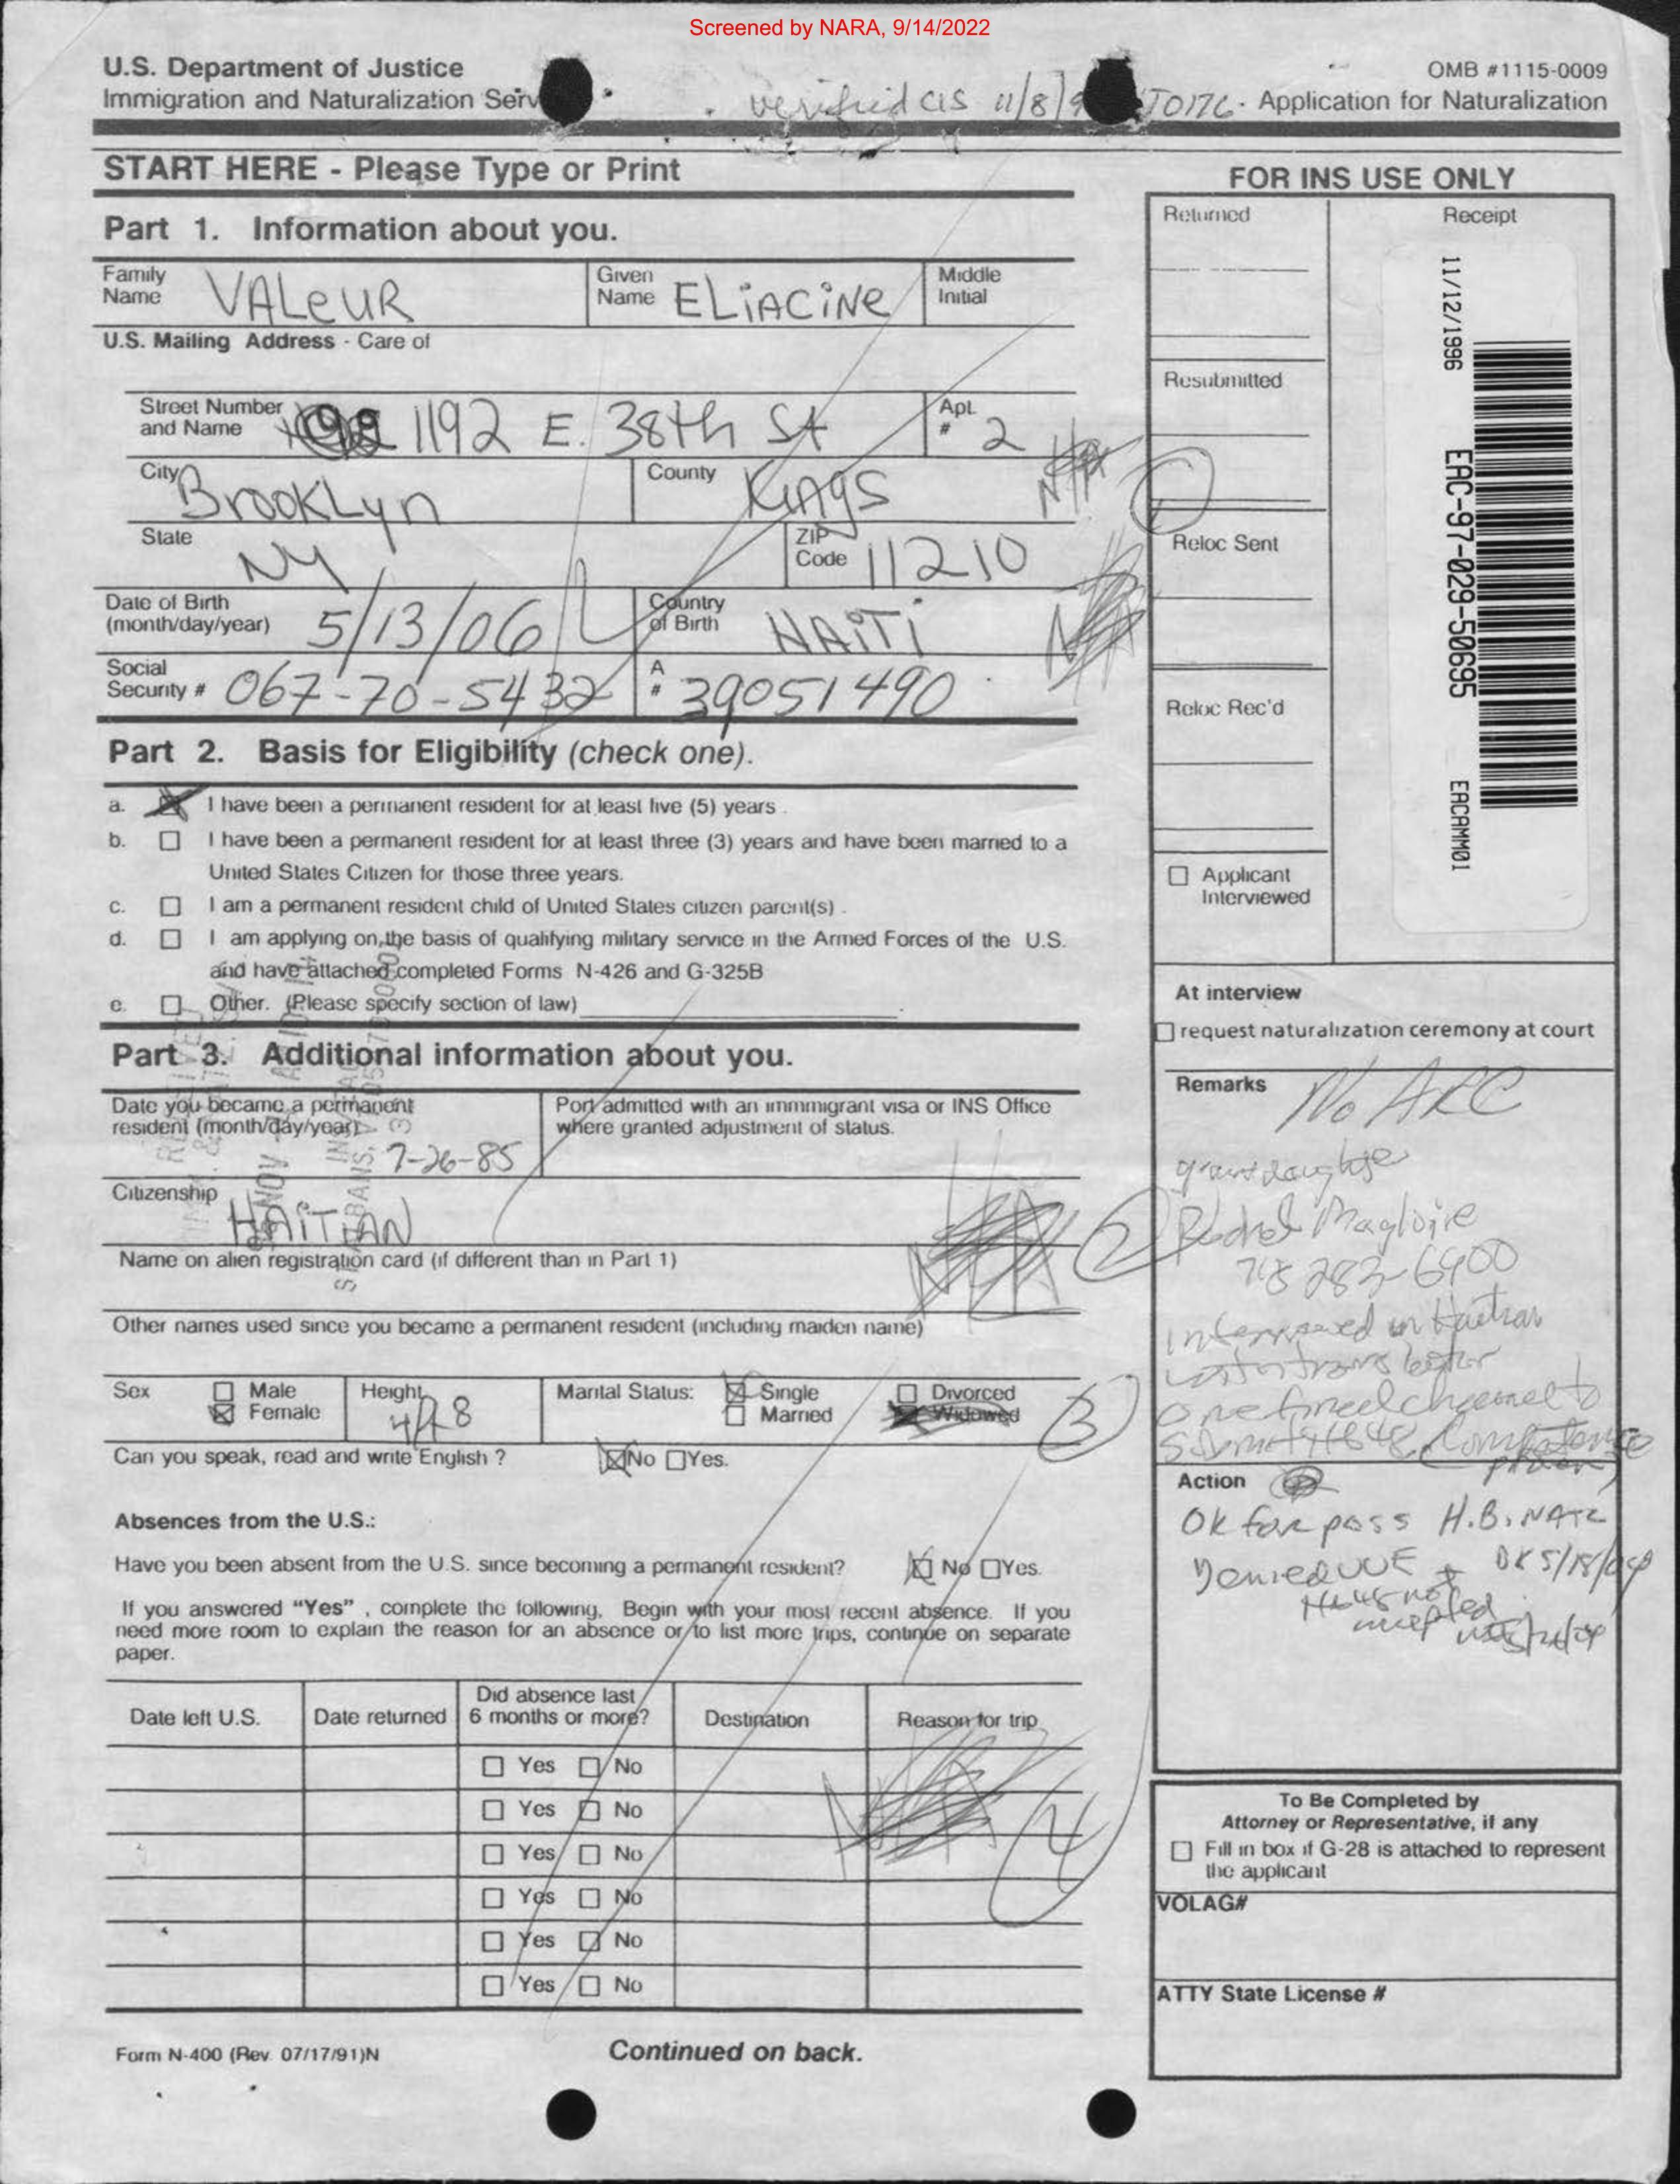 Screened by NARA, 9/14/2022
U.S. Department of Justice
Immigration and Naturalization Serv
verified CIS 11/8/9
OMB #1115-0009
Application for Naturalization
START HERE - Please Type or Print
Part 1. Information about you.
Family Name VALeUR
Given Name ELiACiNe
Middle Initial
U.S. Mailing Address - Care of
Street Number and Name 1192 E. 38th St
Apt. # 2
City BrookLyn
County Kings
N/A
State NY
ZIP Code 11210
Date of Birth (month/day/year) 5/13/06
Country of Birth HAiTi
Social Security # 067-70-5432
A # 39051490
Part 2. Basis for Eligibility (check one).
a. I have been a permanent resident for at least five (5) years .
b. I have been a permanent resident for at least three (3) years and have been married to a
United States Citizen for those three years.
c. I am a permanent resident child of United States citizen parent(s) .
d. I am applying on the basis of qualifying military service in the Armed Forces of the U.S.
and have attached completed Forms N-426 and G-325B
e. Other. (Please specify section of law)
Part 3. Additional information about you.
Date you became a permanent
resident (month/day/year) 7-26-85
Port admitted with an immmigrant visa or INS Office
where granted adjustment of status.
Citizenship HAiTiAN
Name on alien registration card (if different than in Part 1)
Other names used since you became a permanent resident (including maiden name)
Sex
Male
Female
Height 4/18
Marital Status:
Single
Married
Divorced
Widowed
Can you speak, read and write English ? No Yes.
Absences from the U.S.:
Have you been absent from the U.S. since becoming a permanent resident? No Yes.
If you answered “Yes” , complete the following. Begin with your most recent absence. If you
need more room to explain the reason for an absence or to list more trips, continue on separate
paper.
Date left U.S.
Date returned
Did absence last
6 months or more?
Destination
Reason for trip
Yes No
Yes No
Yes No
Yes No
Yes No
Yes No
Form N-400 (Rev. 07/17/91)N
Continued on back.
FOR INS USE ONLY
Returned
Receipt
Resubmitted
Reloc Sent
Reloc Rec'd
Applicant
Interviewed
11/12/1996
EAC-97-029-50695
EACAMM01
At interview
request naturalization ceremony at court
Remarks No ARC
Magloire
718 283-6900
in Haitian
Action
OK for pass H.B. NATZ
Denied DK 5/18/04
not
To Be Completed by
Attorney or Representative, if any
Fill in box if G-28 is attached to represent
the applicant
VOLAG#
ATTY State License #